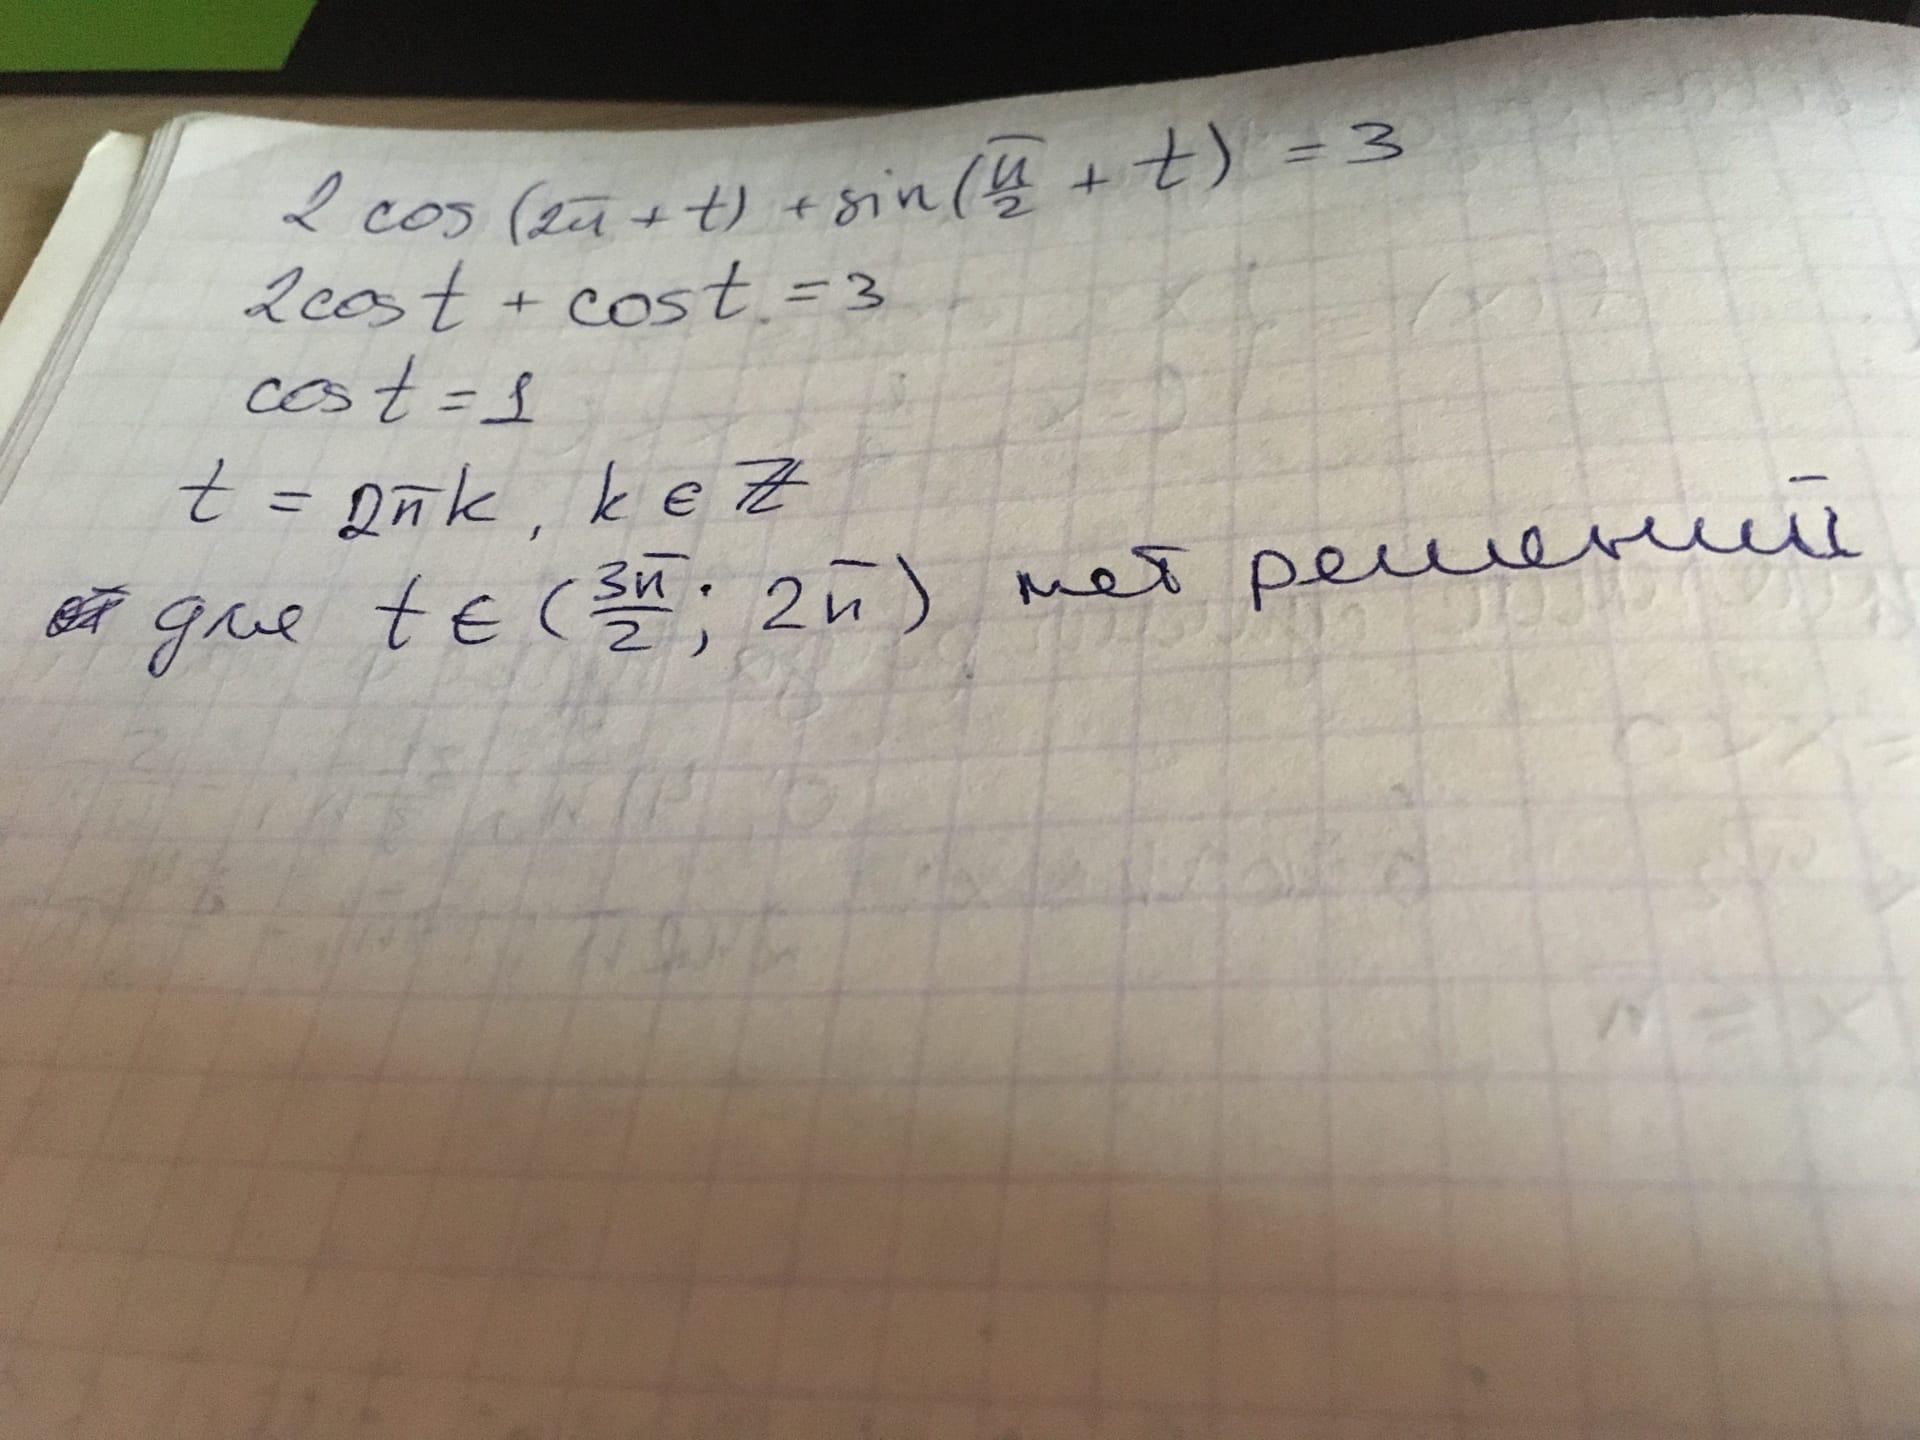 2 cos (2π + t) + sin (π/2 + t) = 3
2cos t + cos t = 3
cos t = 1
t = 2πk, k ∈ ℤ
для t ∈ (3π/2; 2π) нет решений